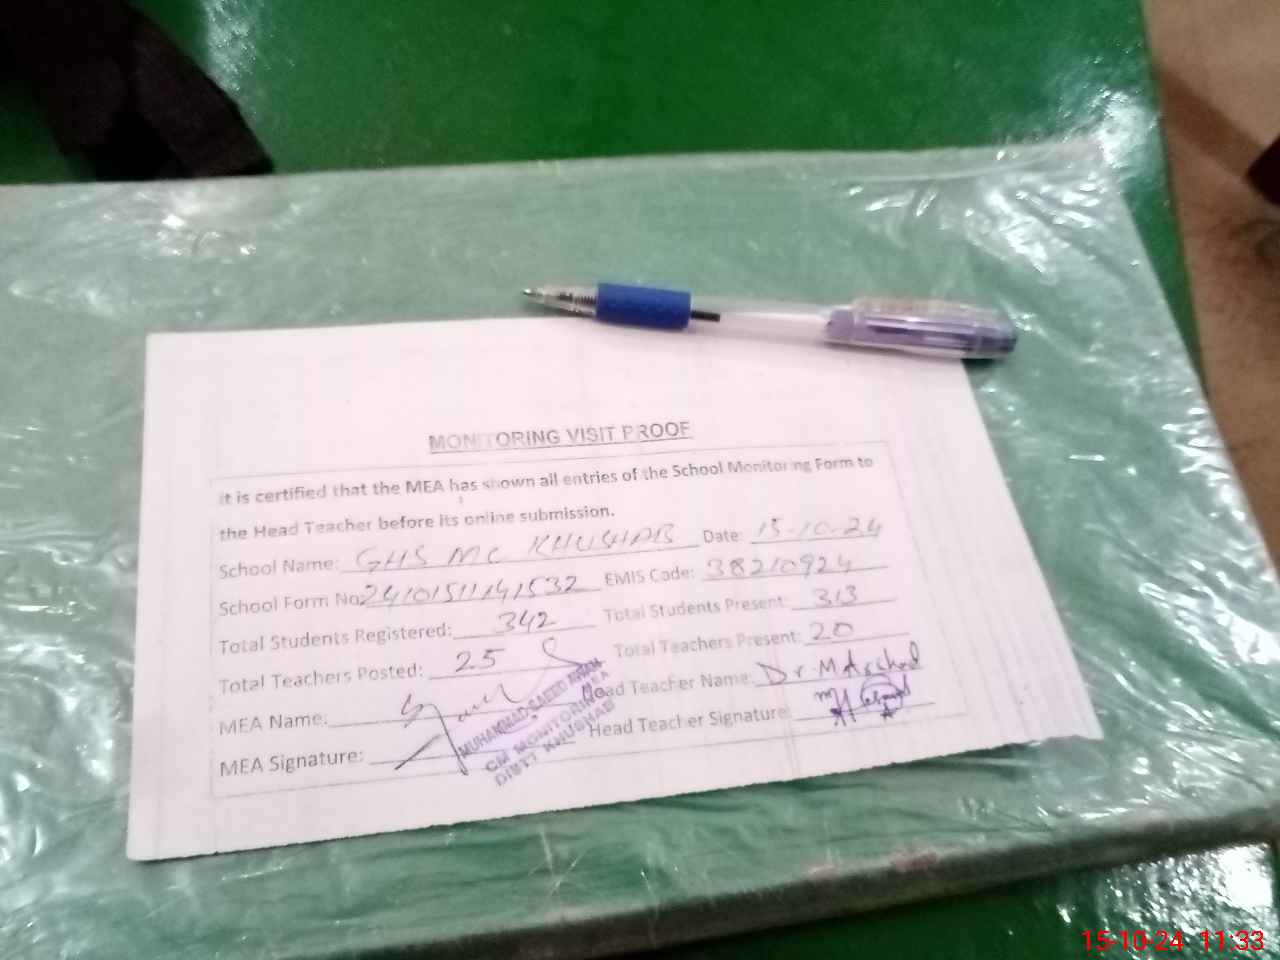 MONITORING VISIT PROOF
It is certified that the MEA has shown all entries of the School Monitoring Form to
the Head Teacher before its online submission.
School Name: GHS MC KHUSHAB Date: 15-10-24
School Form No 2410151141532 EMIS Code: 38210924
Total Students Registered: 342 Total Students Present: 313
Total Teachers Posted: 25 Total Teachers Present: 20
MEA Name: Head Teacher Name: Dr. M Arshad
MEA Signature: Head Teacher Signature:
MUHAMMAD SAEED AWAN
MEA
CM MONITORING
DISTT KHUSHAB
15-10-24 11:33